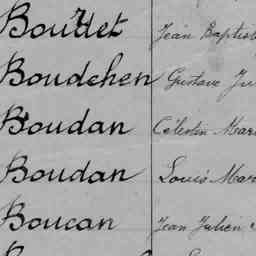 Bourdet Jean Baptist
Boudehen Gustave Ju
Boudan Célestin Mari
Boudan Louis Mar
Boucan Jean Julien